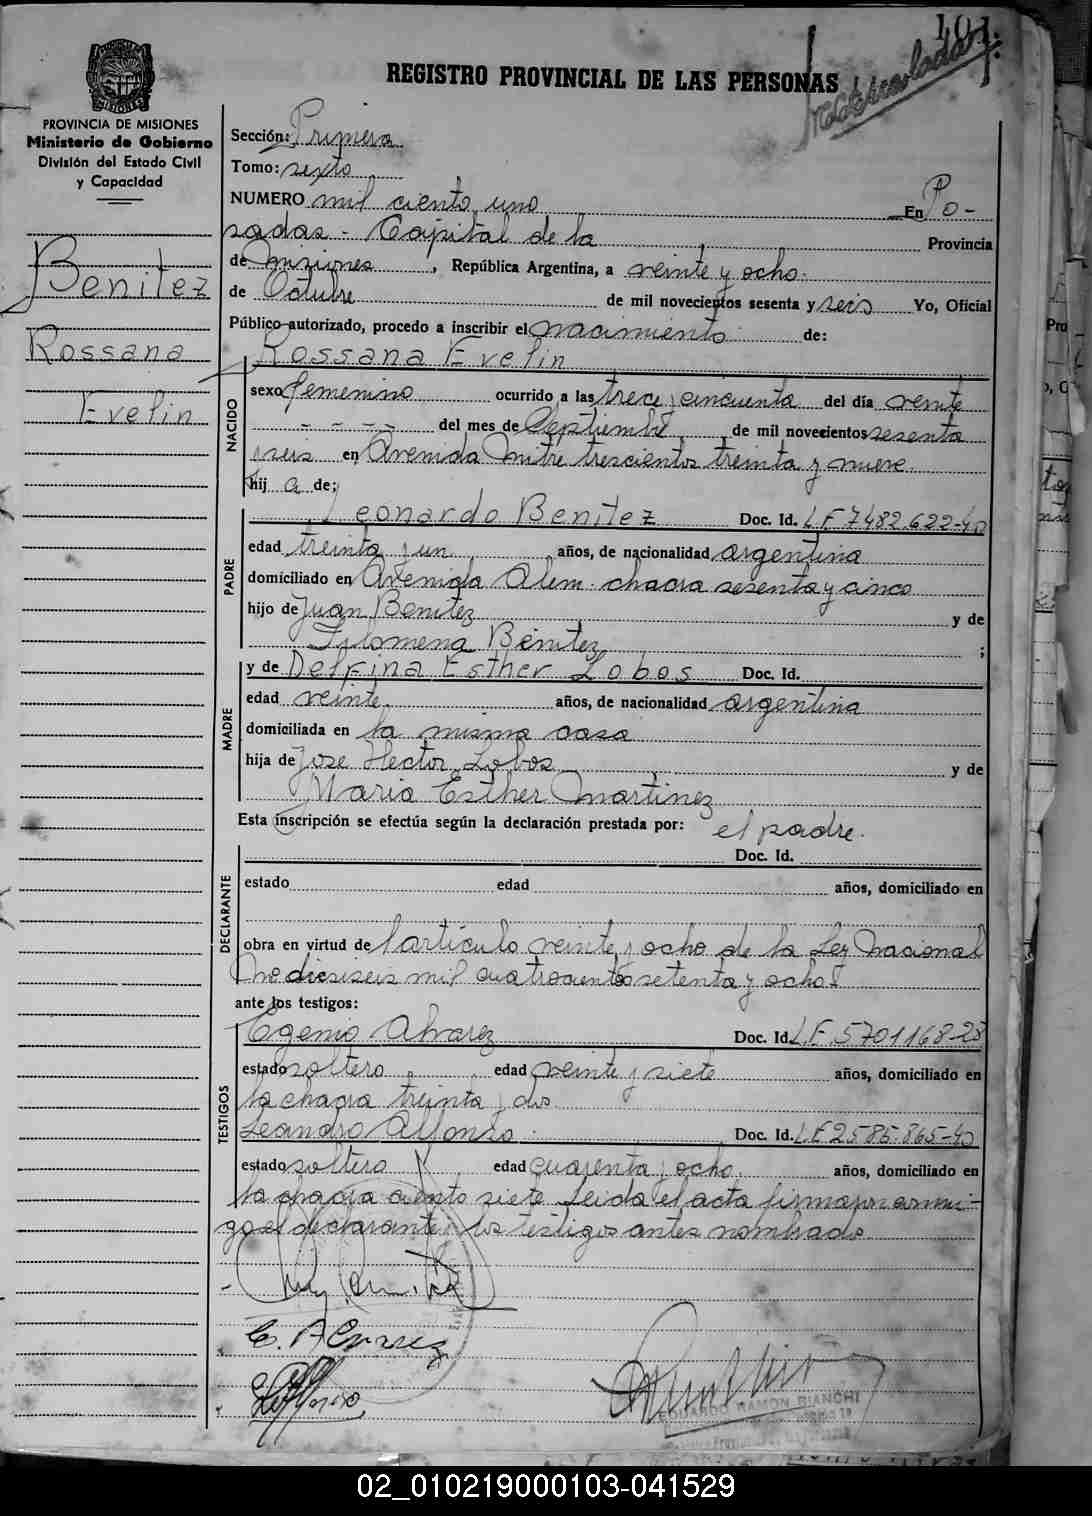 101.
Matriculada
REGISTRO PROVINCIAL DE LAS PERSONAS
PROVINCIA DE MISIONES
Ministerio de Gobierno
División del Estado Civil
y Capacidad
Benitez
Rossana
Evelin
Sección: Primera
Tomo: sexto
NUMERO mil ciento uno En Po-
sadas - Capital de la Provincia
de Misiones, República Argentina, a veinte y ocho
de Octubre de mil novecientos sesenta y seis Yo, Oficial
Público autorizado, procedo a inscribir el nacimiento de:
Rossana Evelin
NACIDO
sexo femenino ocurrido a las trece y cincuenta del día veinte
- - - - del mes de Septiembre de mil novecientos sesenta
y seis en Avenida Mitre trescientos treinta y nueve
hij a de:
PADRE
Leonardo Benitez Doc. Id. L.E 7482.622-40
edad treinta y un años, de nacionalidad argentina
domiciliado en Avenida Alem chacra sesenta y cinco
hijo de Juan Benitez y de
Filomena Benitez ;
MADRE
y de Delfina Esther Lobos Doc. Id.
edad veinte años, de nacionalidad argentina
domiciliada en la misma casa
hija de Jose Hector Lobos y de
Maria Esther Martinez
Esta inscripción se efectúa según la declaración prestada por: el padre.
DECLARANTE
Doc. Id.
estado edad años, domiciliado en
obra en virtud de l artículo veinte y ocho de la Ley Nacional
Nº dieciseis mil cuatrocientos setenta y ocho
ante los testigos:
TESTIGOS
Egenio Alvarez Doc. Id. L.E. 5701168-28
estado soltero edad veinte y siete años, domiciliado en
la chacra treinta y dos
Leandro Alfonso Doc. Id. L.E 2585.865-40
estado soltero edad cuarenta y ocho años, domiciliado en
la chacra ciento siete Leida el acta firmaron conmi-
go el declarante y los testigos antes nombrado
E. Alvarez
EDUARDO RAMON BIANCHI
02_010219000103-041529